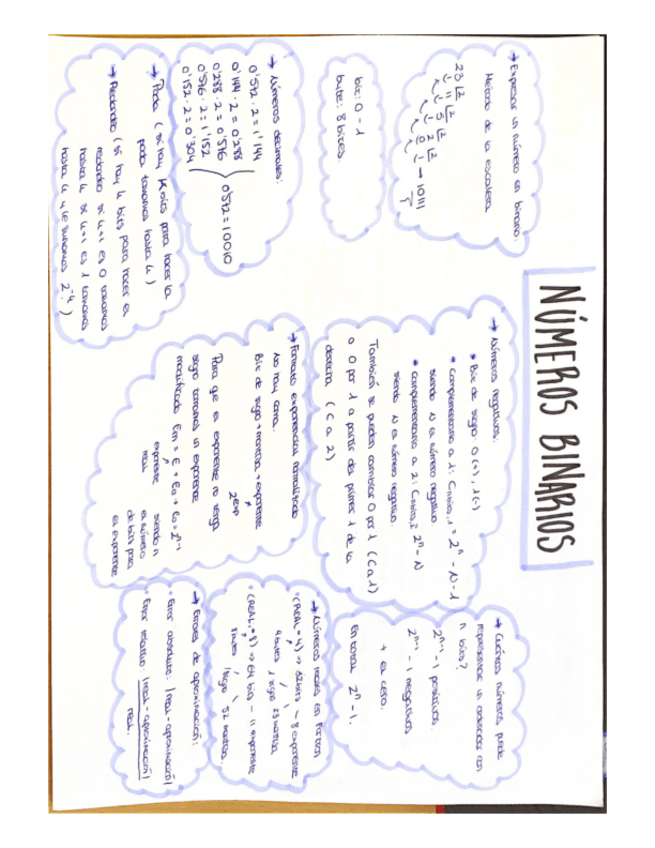 NÚMEROS BINARIOS
→ Expresar un número en binario:
Método de la escalera
23 |2
1 11 |2
1 5 |2
1 2 |2
0 1 → 10111
bit: 0 - 1
byte: 8 bites.
→ Números decimales:
0'572 · 2 = 1'144
0'144 · 2 = 0'288
0'288 · 2 = 0'576
0'576 · 2 = 1'152
0'152 · 2 = 0'304
0'572 = 10010
→ Poda (si hay k bits para hacer la
poda tomamos hasta k)
→ Redondeo (si hay k bits para hacer el
redondeo si k+1 es 0 tomamos
hasta k si k+1 es 1 tomamos
hasta k y le sumamos 2⁻ᵏ.)
→ Números negativos:
* Bit de signo 0 (+), 1 (-)
* Complementario a 1: C = 2ⁿ - N - 1
siendo N el número negativo
* Complementario a 2: C = 2ⁿ - N
siendo N el número negativo.
También se pueden cambiar 0 por 1 (Ca1)
o 0 por 1 a partir del primer 1 de la
derecha (Ca2)
→ Formato exponencial normalizado
No hay coma.
Bit de signo + mantisa + exponente
2ᵉˣᵖ
Para que el exponente no tenga
signo tomamos un exponente
modificado Em = E + E₀ → E₀ = 2ⁿ⁻¹
exponente
real
siendo n
el número
de bits para
el exponente
→ Cuántos números puede
representar un ordenador con
n bits?
2ⁿ⁻¹ - 1 positivos.
2ⁿ⁻¹ - 1 negativos
+ el cero.
En total 2ⁿ - 1.
→ Números reales en Fortran
* (REAL = 4) → 32 bits - 8 exponente
4 bytes 1 signo 23 mantisa
* (REAL = 8) → 64 bits - 11 exponente
8 bytes 1 signo 52 mantisa.
→ Errores de aproximación:
* Error absoluto: |real - aproximación|
* Error relativo: |real - aproximación|
real.